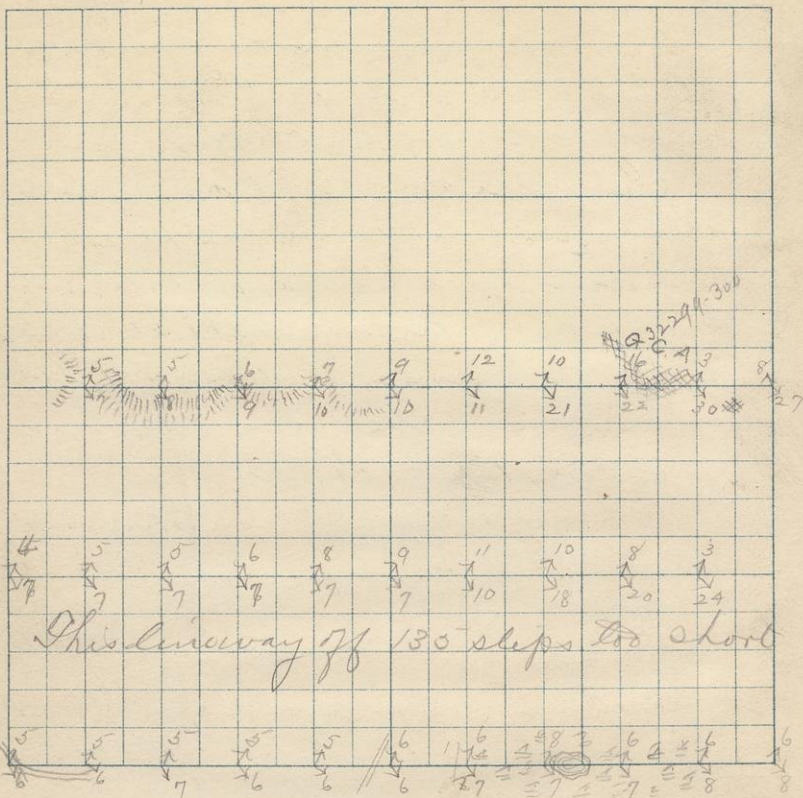 Q 32299-300
C. A
5 5 6 7 9 12 10 16 3 8
7 8 9 10 10 11 21 22 30 27
4 5 5 6 8 9 11 10 8 3
7 7 7 7 7 7 10 18 20 24
This line way off 135 steps too short
5 5 5 5 5 6 6 8 6 6 6
6 6 7 6 6 6 7 7 7 8 8